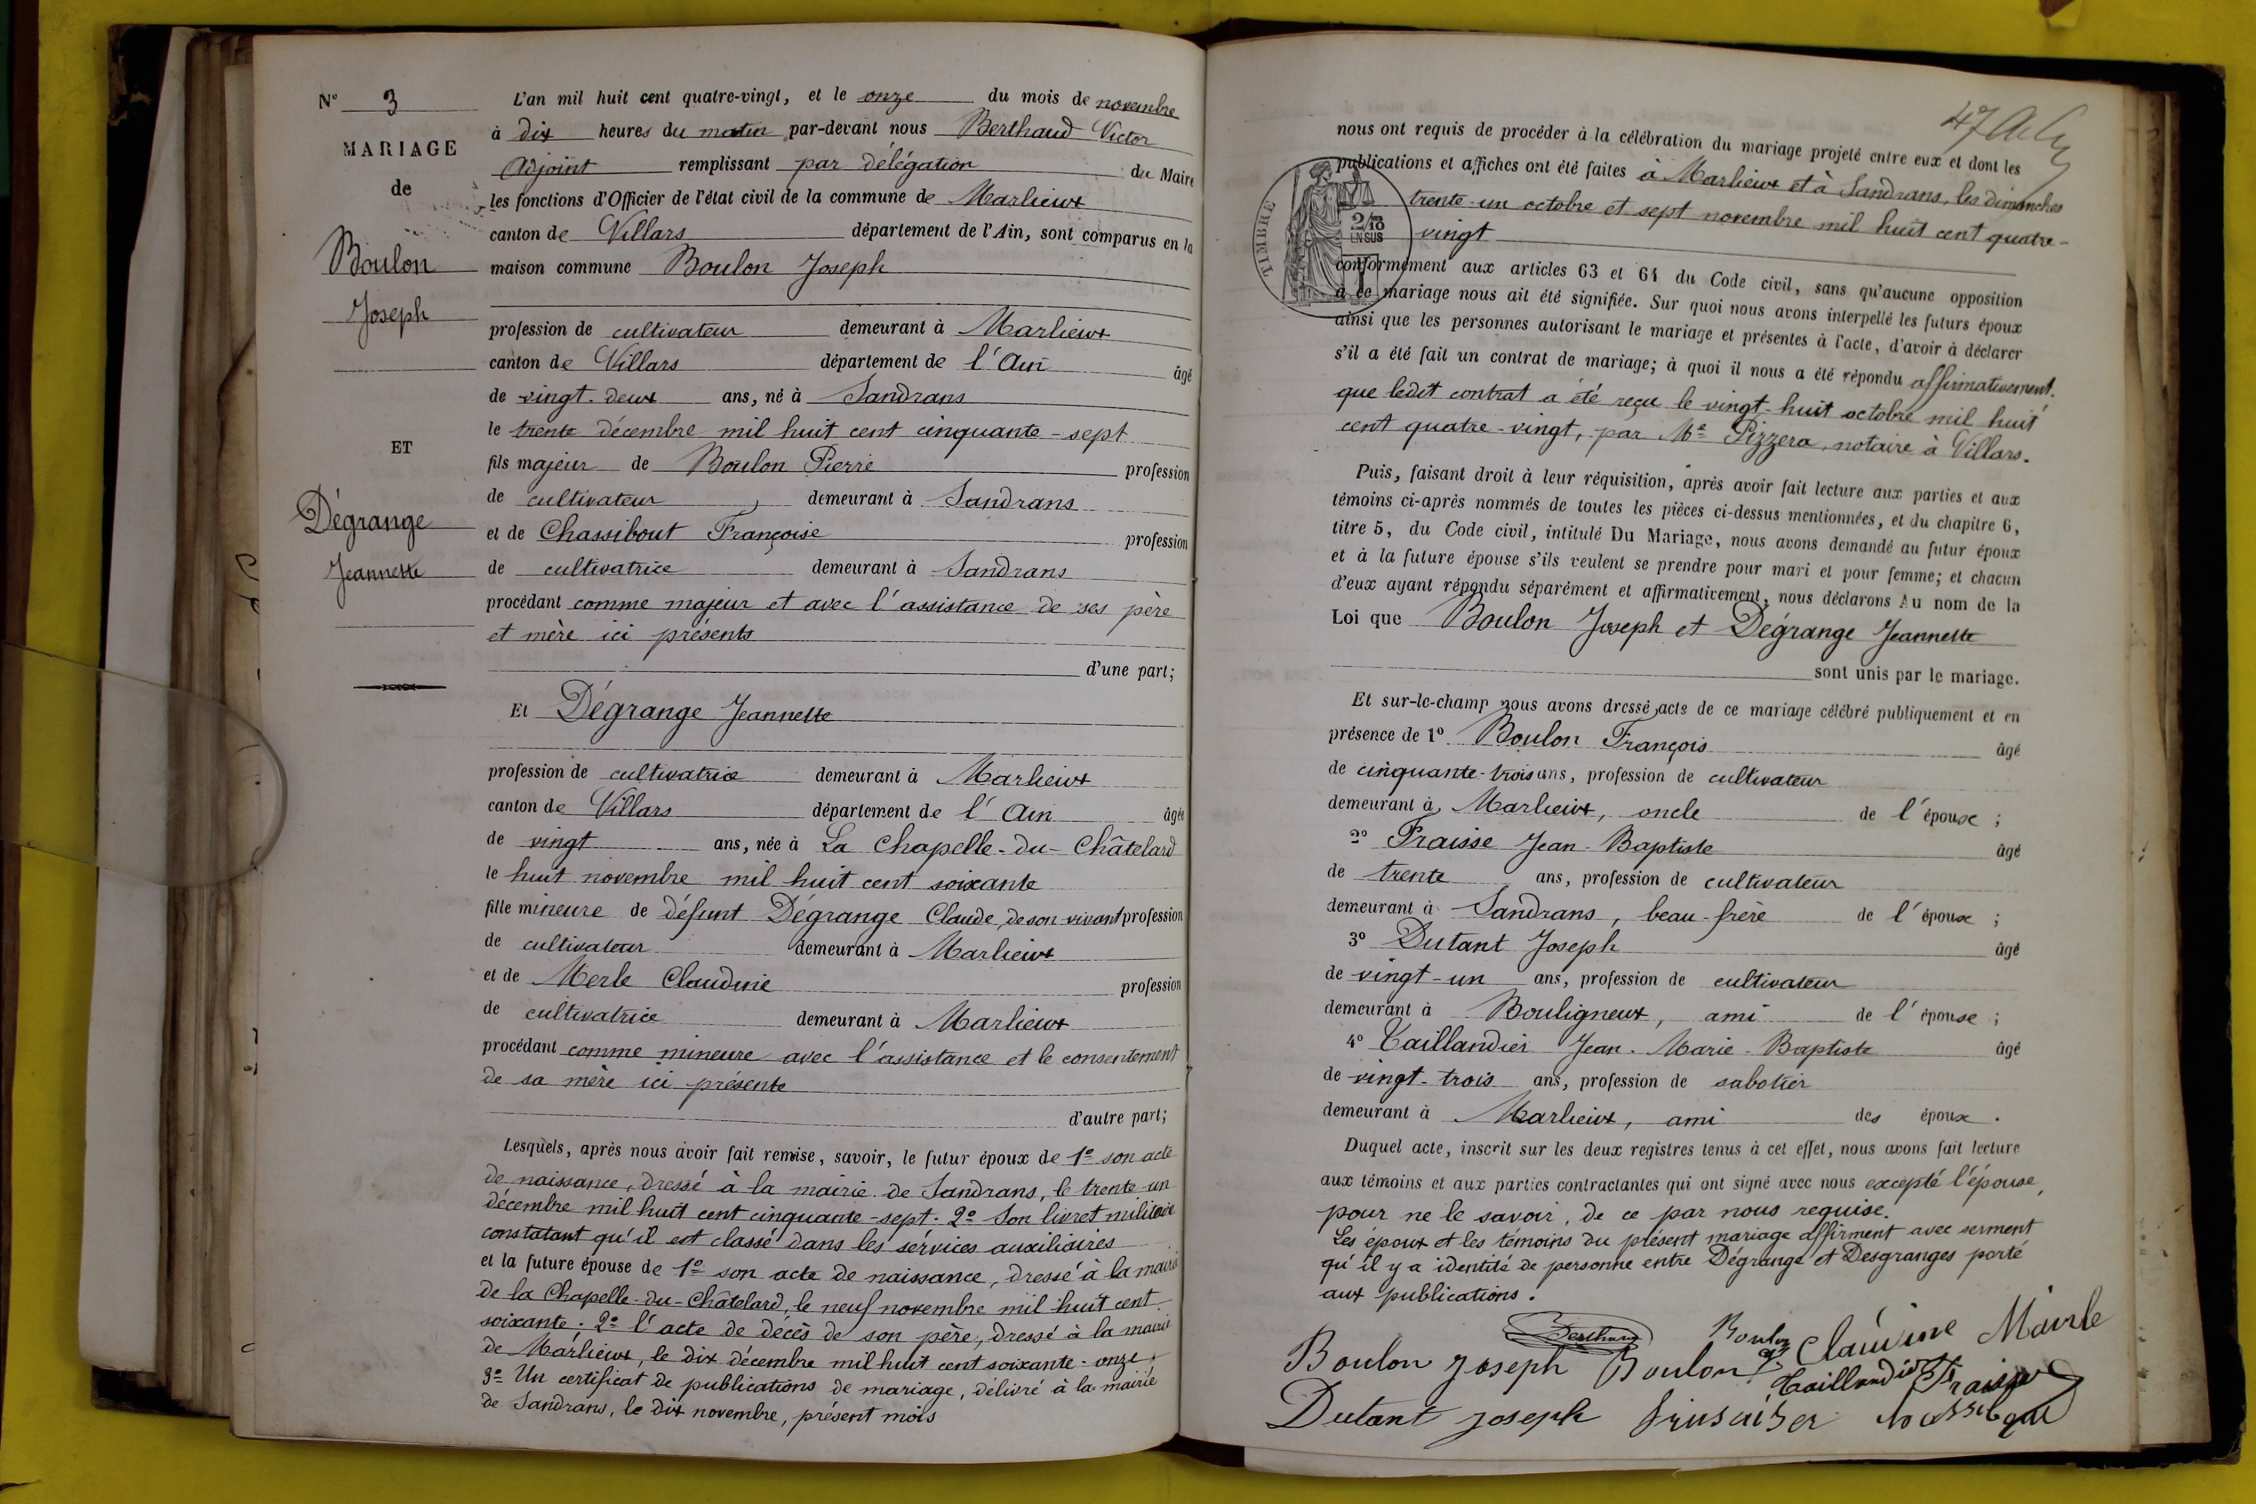 N° 3
MARIAGE
de
Boulon
Joseph
ET
Dégrange
Jeannette
L'an mil huit cent quatre-vingt, et le onze du mois de novembre
à dix heures du matin par-devant nous Berthaud Victor
Adjoint remplissant par délégation du Maire
les fonctions d'Officier de l'état civil de la commune de Marlieux
canton de Villars département de l'Ain, sont comparus en la
maison commune Boulon Joseph
profession de cultivateur demeurant à Marlieux
canton de Villars département de l'Ain âgé
de vingt-deux ans, né à Sandrans
le trente décembre mil huit cent cinquante-sept
fils majeur de Boulon Pierre profession
de cultivateur demeurant à Sandrans
et de Chassibout Françoise profession
de cultivatrice demeurant à Sandrans
procédant comme majeur et avec l'assistance de ses père
et mère ici présents
d'une part;
Et Dégrange Jeannette
profession de cultivatrice demeurant à Marlieux
canton de Villars département de l'Ain âgée
de vingt ans, née à La Chapelle-du-Châtelard
le huit novembre mil huit cent soixante
fille mineure de défunt Dégrange Claude, de son vivant profession
de cultivateur demeurant à Marlieux
et de Merle Claudine profession
de cultivatrice demeurant à Marlieux
procédant comme mineure avec l'assistance et le consentement
de sa mère ici présente
d'autre part;
Lesquels, après nous avoir fait remise, savoir, le futur époux de 1° son acte
de naissance, dressé à la mairie de Sandrans, le trente-un
décembre mil huit cent cinquante-sept. 2° Son livret militaire
constatant qu'il est classé dans les services auxiliaires
et la future épouse de 1° son acte de naissance, dressé à la mairie
de la Chapelle-du-Châtelard, le neuf novembre mil huit cent
soixante. 2° l'acte de décès de son père, dressé à la mairie
de Marlieux, le dix décembre mil huit cent soixante-onze.
3° Un certificat de publications de mariage, délivré à la mairie
de Sandrans, le dix novembre, présent mois
47
TIMBRE
2/10
EN SUS
nous ont requis de procéder à la célébration du mariage projeté entre eux et dont les
publications et affiches ont été faites à Marlieux et à Sandrans, les dimanches
trente-un octobre et sept novembre mil huit cent quatre-
vingt
conformément aux articles 63 et 64 du Code civil, sans qu'aucune opposition
à ce mariage nous ait été signifiée. Sur quoi nous avons interpellé les futurs époux
ainsi que les personnes autorisant le mariage et présentes à l'acte, d'avoir à déclarer
s'il a été fait un contrat de mariage; à quoi il nous a été répondu affirmativement.
que ledit contrat a été reçu le vingt-huit octobre mil huit
cent quatre-vingt, par Me Pizzera, notaire à Villars.
Puis, faisant droit à leur réquisition, après avoir fait lecture aux parties et aux
témoins ci-après nommés de toutes les pièces ci-dessus mentionnées, et du chapitre 6,
titre 5, du Code civil, intitulé Du Mariage, nous avons demandé au futur époux
et à la future épouse s'ils veulent se prendre pour mari et pour femme; et chacun
d'eux ayant répondu séparément et affirmativement, nous déclarons Au nom de la
Loi que Boulon Joseph et Dégrange Jeannette
sont unis par le mariage.
Et sur-le-champ nous avons dressé acte de ce mariage célébré publiquement et en
présence de 1° Boulon François âgé
de cinquante-trois ans, profession de cultivateur
demeurant à Marlieux, oncle de l'épouse;
2° Fraisse Jean-Baptiste âgé
de trente ans, profession de cultivateur
demeurant à Sandrans, beau-frère de l'épouse;
3° Dutant Joseph âgé
de vingt-un ans, profession de cultivateur
demeurant à Bouligneux, ami de l'épouse;
4° Taillandier Jean-Marie-Baptiste âgé
de vingt-trois ans, profession de sabotier
demeurant à Marlieux, ami des époux.
Duquel acte, inscrit sur les deux registres tenus à cet effet, nous avons fait lecture
aux témoins et aux parties contractantes qui ont signé avec nous excepté l'épouse,
pour ne le savoir, de ce par nous requise.
Les époux et les témoins du présent mariage affirment avec serment
qu'il y a identité de personne entre Dégrange et Desgranges porté
aux publications.
Berthaud Boulon Clauvine Mairle
Boulon Joseph Boulon Taillandier Fraisse
Dutant joseph